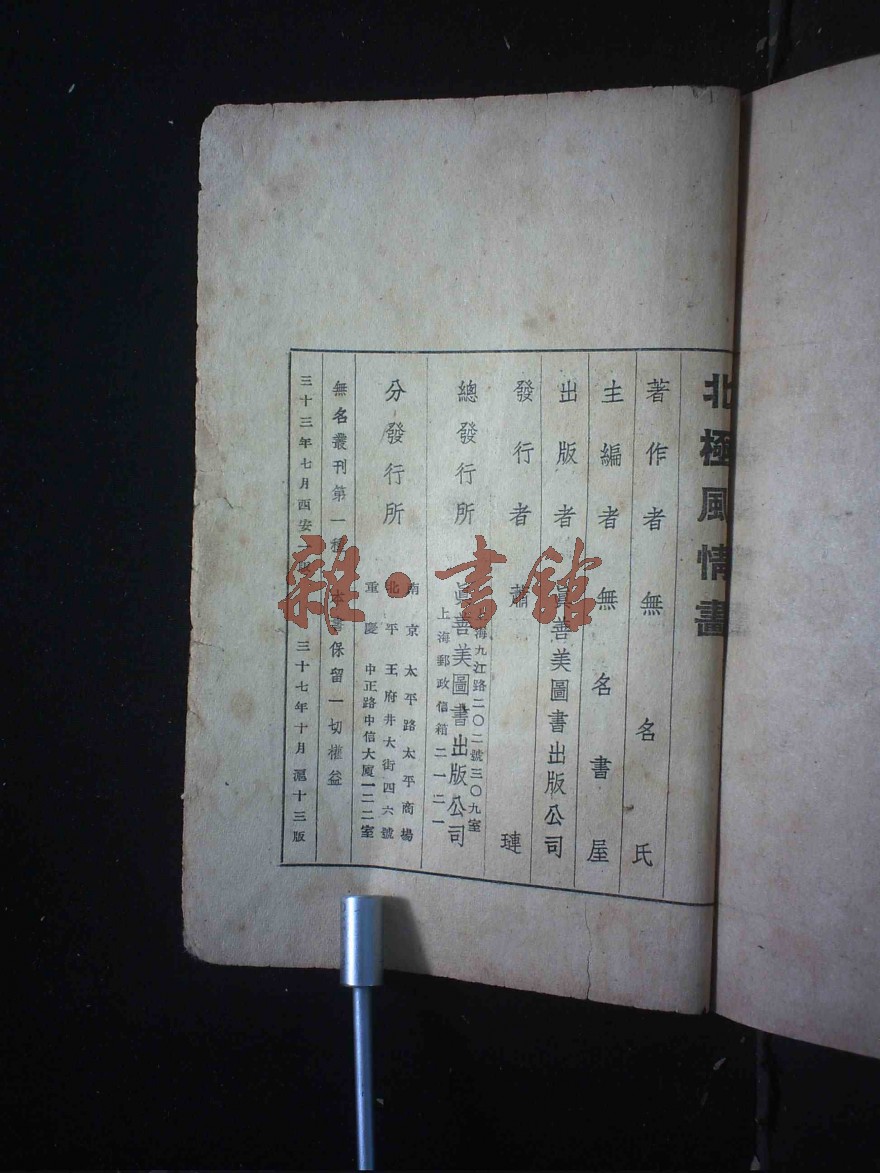 北極風情畫
著作者無名氏
主編者無名書屋
出版者眞善美圖書出版公司
發行者蕭璉
總發行所
上海九江路二〇二號三〇九室
眞善美圖書出版公司
上海郵政信箱二一二一
分發行所
南京太平路太平商場
北平王府井大街四六號
重慶中正路中信大廈一二二室
無名叢刊第一種 本書保留一切權益
三十三年七月西安一版 三十七年十月滬十三版
雜·書館